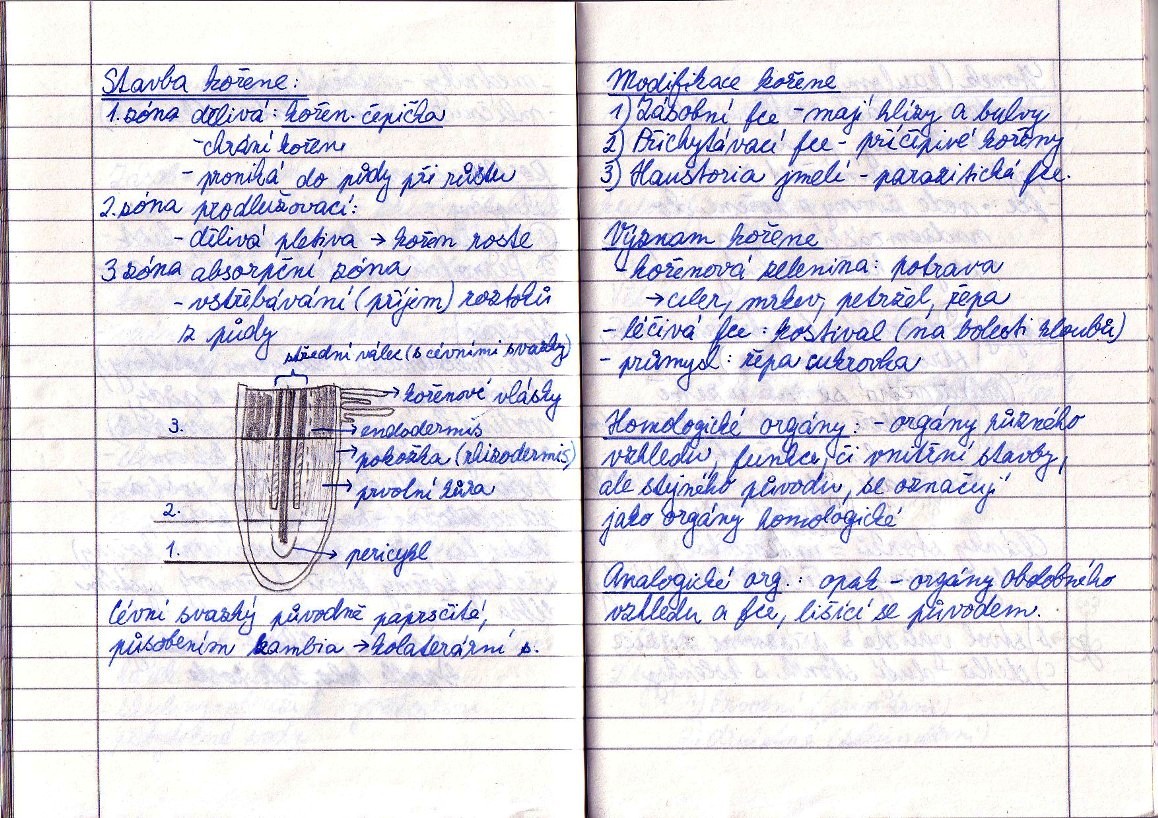 Stavba kořene:
1. zóna dělivá: kořen. čepička
- chrání kořene
- proniká do půdy při růstu
2. zóna prodlužovací:
- dělivá pletiva → kořen roste
3 zóna absorpční zóna
- vstřebávání (příjem) roztoků
z půdy
střední válec (s cévními svazky)
→ kořenové vlásky
3.
→ endodermis
→ pokožka (rhizodermis)
→ prvotní kůra
2.
1.
→ pericykl
Cévní svazky původně paprsčité,
působením kambia → kolaterární s.
Modifikace kořene
1) Zásobní fce - mají hlízy a bulvy
2) Přichytávací fce - příčipivé kořeny
3) Haustoria jmelí - parazitická fce.
Význam kořene
- kořenová zelenina: potrava
→ celer, mrkev, petržel, řepa
- léčivá fce: kostival (na bolesti kloubů)
- průmysl: řepa cukrovka
Homologické orgány: - orgány různého
vzhledu, funkce, či vnitřní stavby,
ale stejného původu, se označují
jako orgány homologické
Analogické org.: opak - orgány obdobného
vzhledu a fce, lišící se původem.